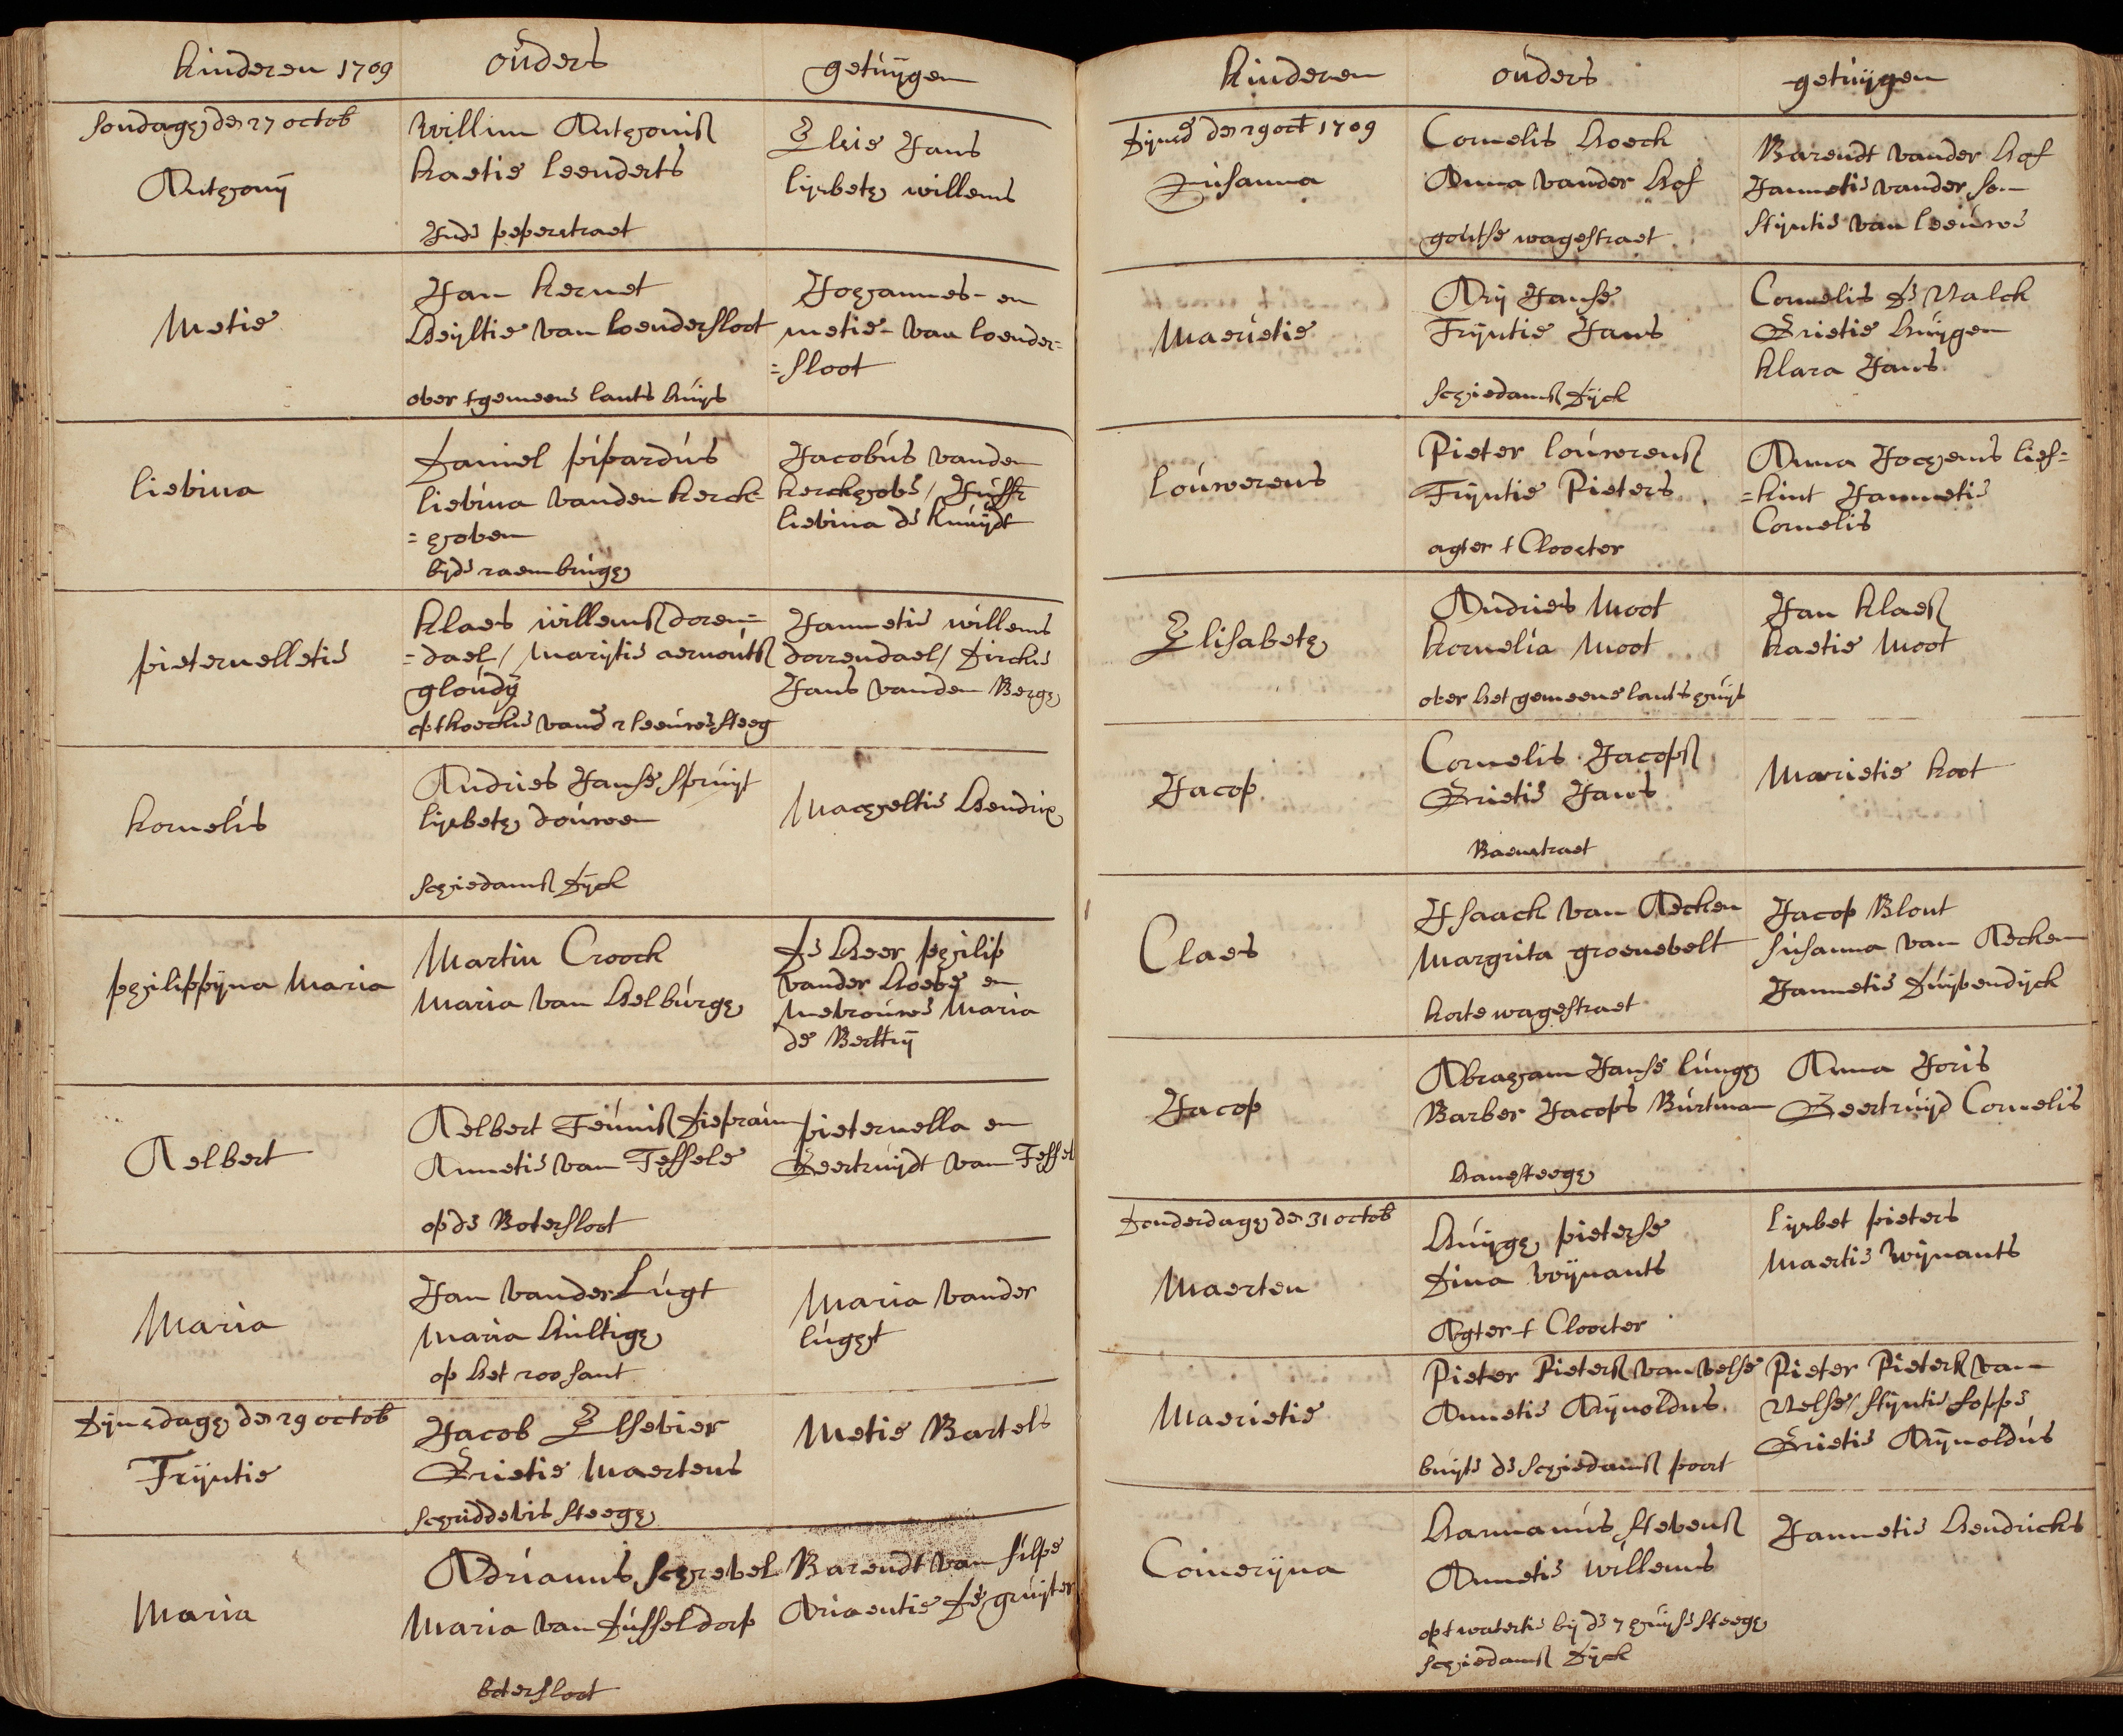 kinderen 1709 ouders getuijgen
Sondagh de 27 octob
Anthonij
Willim Anthoniss
kaetie leenderts
Inde peperstraet
Elsie Jans
lijsbeth willems
Metie
Jan kernet
Heijltie van loendersloot
over tgemeene lants huijs
Johannes - en
metie - van loender=
=sloot
lievina
Daniel pipardus
lievina vanden kerck=
=hoven
bijde raembrugh
Jacobus vanden
kerckhove / Juffr
lievina de knuijdt
pieternelletie
klaes willemss doren=
=dael / marijtie aernouts
gloudij
opt hoeckie vande 2 leeuwe steeg
Jannetie willems
dorrendael / Dirckie
Jans vanden Bergh
kornelis
Andries Janse spruijt
lijsbeth douwen
schiedamss Dijck
Machteltie Hendrix
philippijna Maria
Martin Croock
Maria van Helburgh
De Heer philip
vander Hoeve en
Mevrouwe Maria
de Berttrij
Aelbert
Aelbert Teuniss Diepraim
Annetie van Tessele
op de Botersloot
pieternella en
Geertruijdt van Tessel
Maria
Jan vander Lugt
Maria Hultigh
op het roo sant
Maria vander
lught
Dijnsdagh de 29 octob
Trijntie
Jacob Elsevier
Grietie Maertens
schuddevis steegh
Metie Bartels
Maria
Adrianus schrevel
Maria van Dusseldorp
botersloot
Barendt van silpe
Ariaentie De gruijter
kinderen ouders getuijgen
Dijnsd de 29 oct 1709
Susanna
Cornelis Hoeck
Anna vander Hof
goutse wagestraet
Barendt vander Hof
Jannetie vander
Stijntie van leeuwe
Maertie
Arij Janse
Trijntie Jans
schiedamss Dijck
Cornelis De Valck
Grietie Huijgen
klara Jans
louwerens
Pieter louwerenss
Trijntie Pieters
agter t Clooster
Anna Jochems lief=
=kint Jannetie
Cornelis
Elisabeth
Andries Moot
kornelia Moot
over het gemeene lants huijs
Jan klaess
kaetie Moot
Jacop
Cornelis Jacopss
Grietie Jans
Baenstraet
Marietie koot
Claes
Isaack van Aecken
Margrita groenevelt
korte wagestraet
Jacop Blont
Susanna van Aecken
Jannetie Duijvendijck
Jacop
Abraham Janse lungh
Barber Jacops Burtman
Hanesteegh
Anna Joris
Geertruijd Cornelis
Donderdagh de 31 octob
Maerten
Huijgh pieterse
Dina wijnants
Agter t Clooster
lijsbet pieters
Maertie wijnants
Maerietie
Pieter Pieterss van velse
Annetie Arijnoldus
buijte de schiedamss poort
Pieter Pieterss van
Velse / stijntie foppe
Grietie Arijnoldus
Conerijna
Harmanus stevenss
Annetie willems
opt watertie bij de 7 huijse steegh
schiedamss Dijck
Jannetie Hendricks